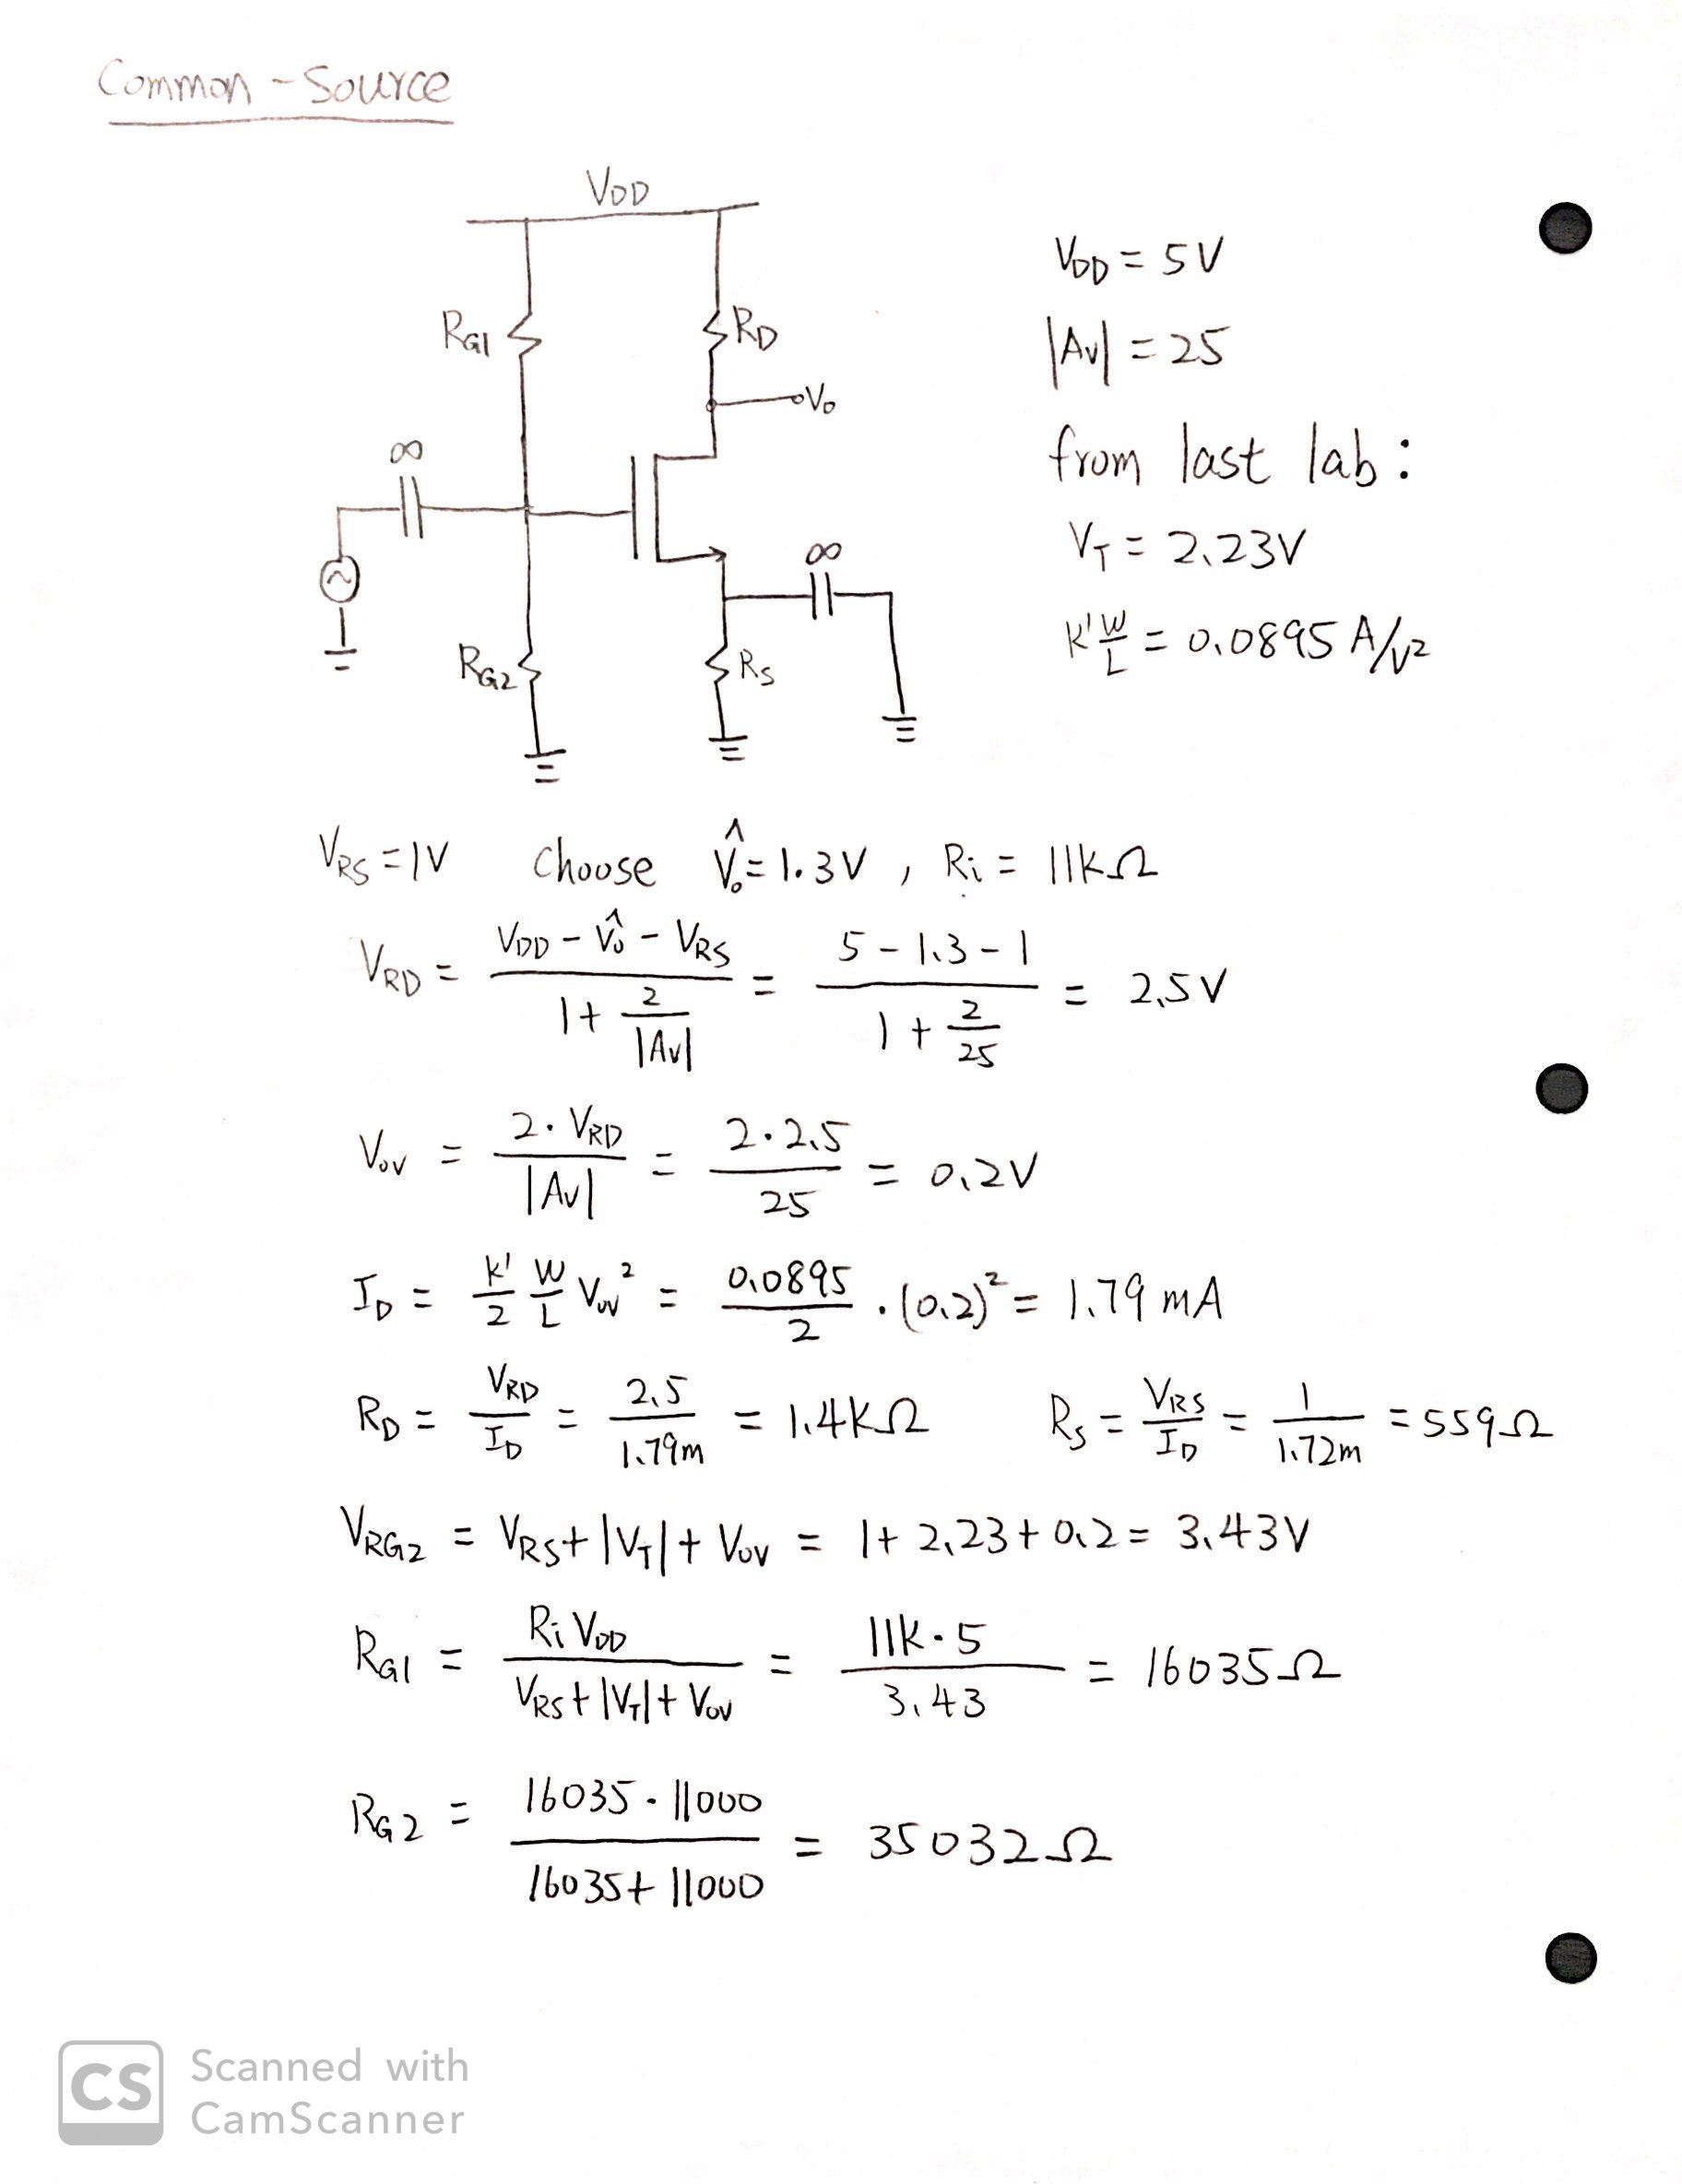 Common - Source
VDD
VDD = 5V
RG1
RD
|Av| = 25
Vo
∞
from last lab :
VT = 2.23V
∞
K' W/L = 0.0895 A/V²
RG2
RS
VRS = 1V choose V̂o = 1.3V , Ri = 11kΩ
VRD = (VDD - V̂o - VRS) / (1 + 2/|Av|) = (5 - 1.3 - 1) / (1 + 2/25) = 2.5V
Vov = 2·VRD / |Av| = 2·2.5 / 25 = 0.2V
ID = K'/2 W/L Vov² = 0.0895/2 · (0.2)² = 1.79 mA
RD = VRD/ID = 2.5/1.79m = 1.4KΩ RS = VRS/ID = 1/1.72m = 559Ω
VRG2 = VRS + |VT| + Vov = 1 + 2.23 + 0.2 = 3.43V
RG1 = Ri VDD / (VRS + |VT| + Vov) = 11K·5 / 3.43 = 16035Ω
RG2 = (16035 · 11000) / (16035 + 11000) = 35032Ω
CS Scanned with
CamScanner